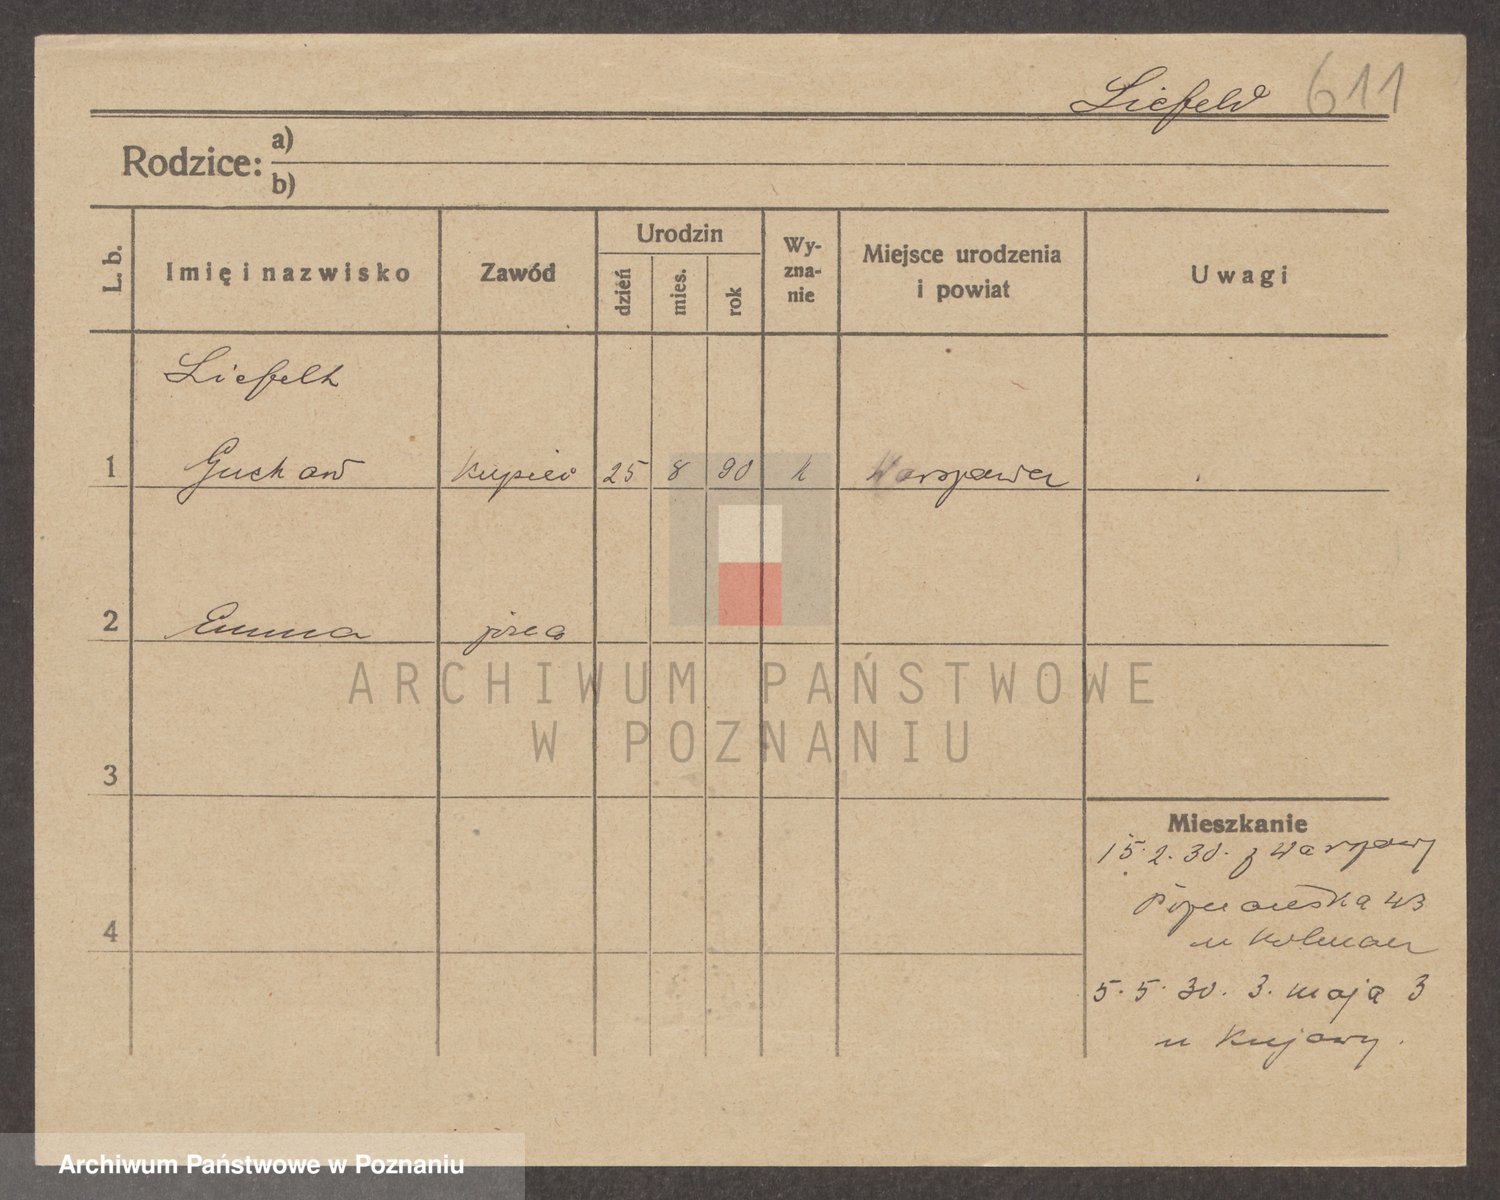 Liefeld 611
Rodzice: a)
b)
L. b.
Imię i nazwisko
Zawód
Urodzin
dzień
mies.
rok
Wy-
zna-
nie
Miejsce urodzenia
i powiat
Uwagi
Liefelt
1 Kupiec 25 8 90 k Warszawa
2 Emma
3
4
Mieszkanie
15. 2. 30. z Warszawy
Poznańska 43
u Kolman
5. 5. 30. 3. maja 3
u Kujawy.
ARCHIWUM PAŃSTWOWE
W POZNANIU
Archiwum Państwowe w Poznaniu